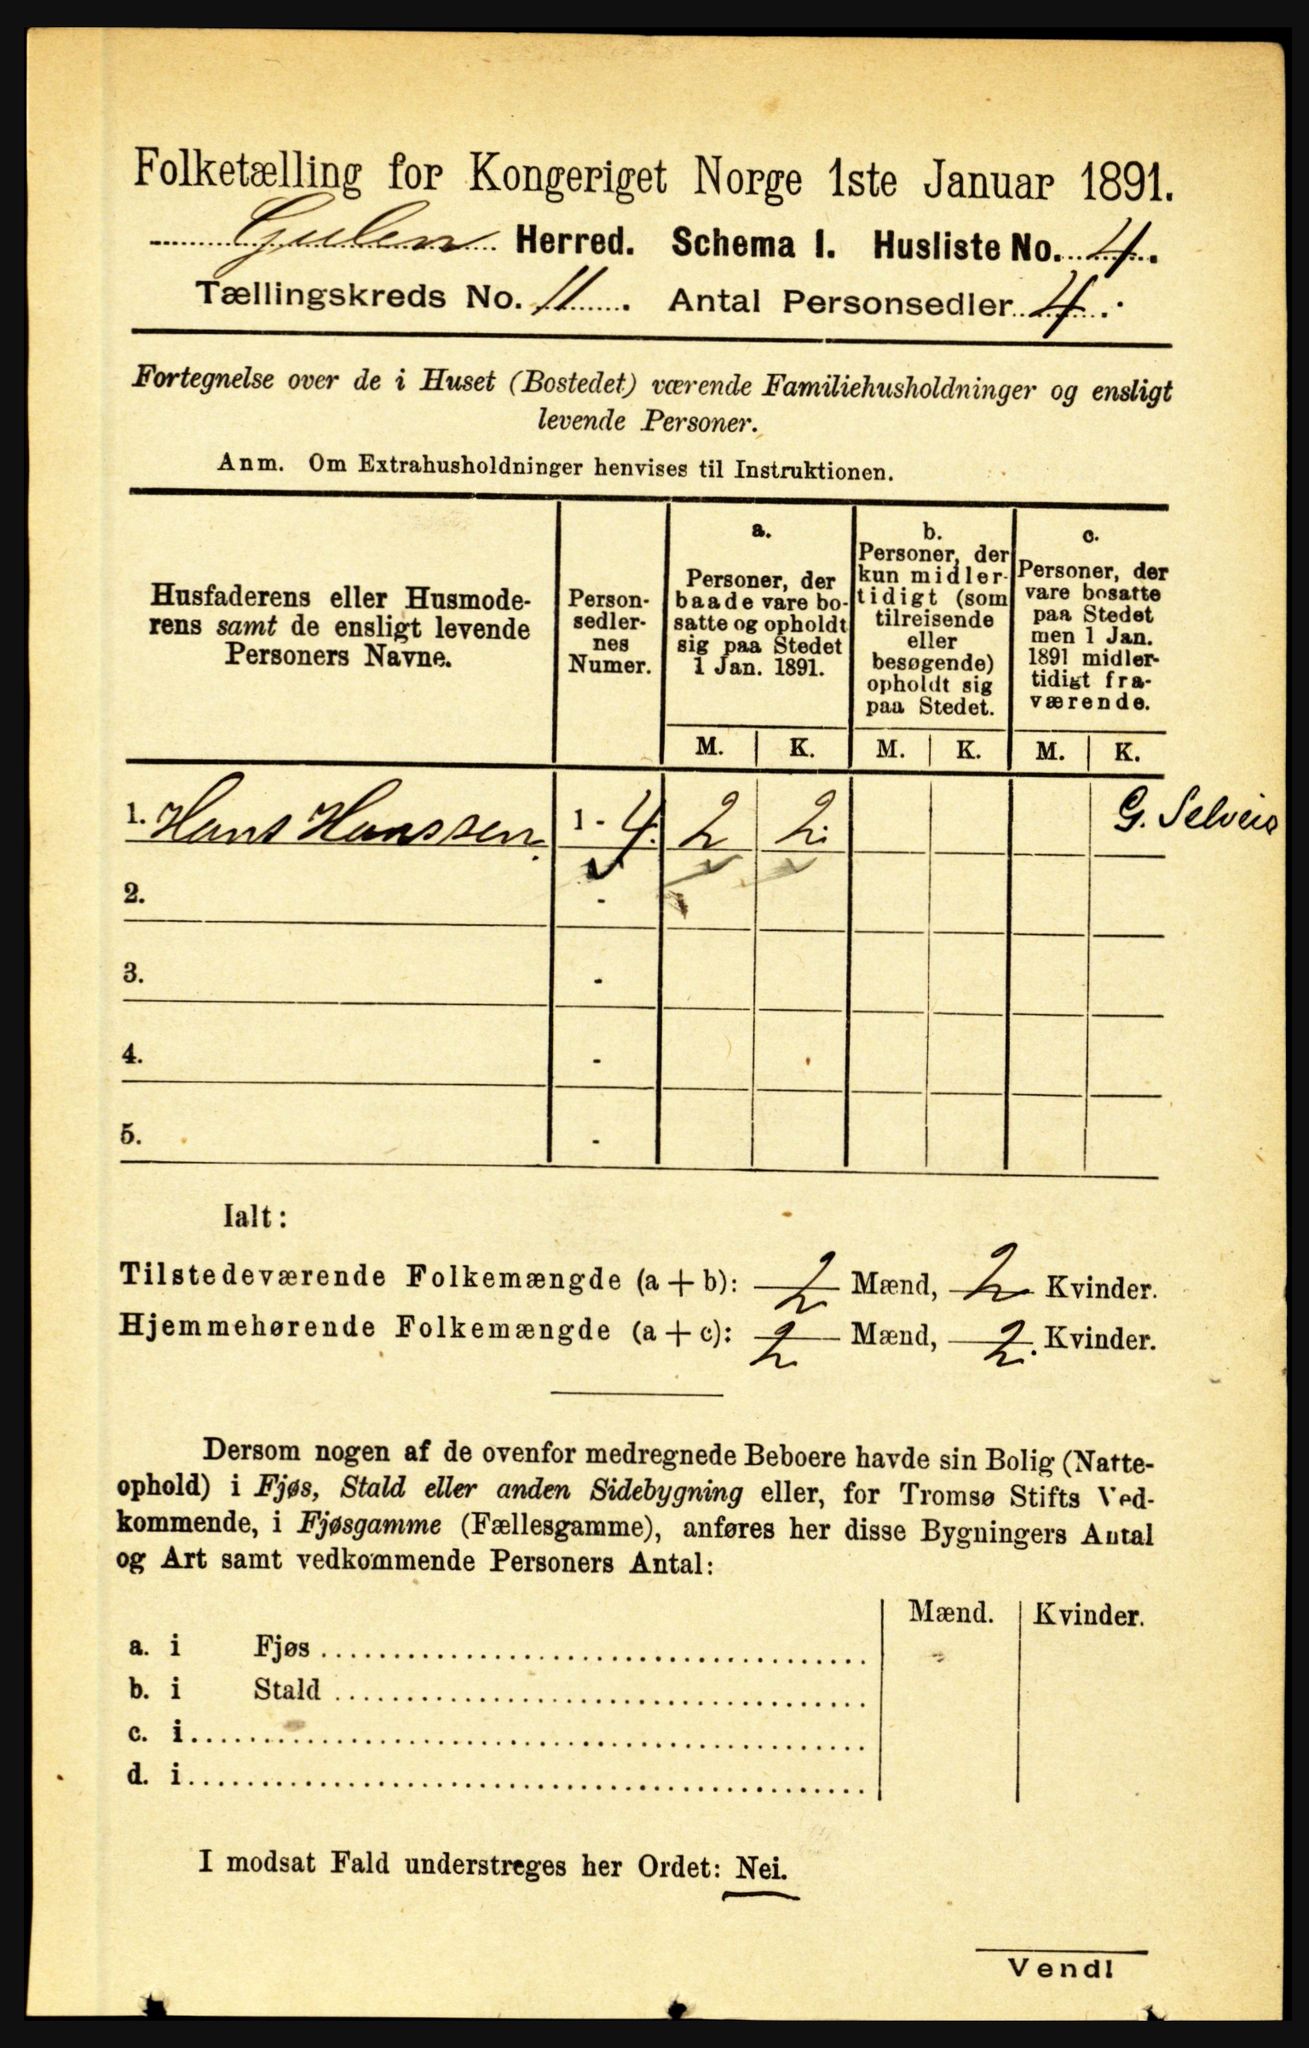 Folketælling for Kongeriget Norge 1ste Januar 1891.
Gulen Herred. Schema I. Husliste No. 4.
Tællingskreds No. 11. Antal Personsedler 4.
Fortegnelse over de i Huset (Bostedet) værende Familiehusholdninger og ensligt
levende Personer.
Anm. Om Extrahusholdninger henvises til Instruktionen.
Husfaderens eller Husmode-
rens samt de ensligt levende
Personers Navne.
Person-
sedler-
nes
Numer.
a.
Personer, der
baade vare bo-
satte og opholdt
sig paa Stedet
1 Jan. 1891.
b.
Personer, der
kun midler-
tidigt (som
tilreisende
eller
besøgende)
opholdt sig
paa Stedet.
c.
Personer, der
vare bosatte
paa Stedet
men 1 Jan.
1891 midler-
tidigt fra-
værende.
M. K. M. K. M. K.
1. Hans Hanssen. 1 - 4. 2 2. G.
2. -
3. -
4. -
5. -
Ialt:
Tilstedeværende Folkemængde (a + b): 2 Mænd, 2 Kvinder.
Hjemmehørende Folkemængde (a + c): 2 Mænd, 2. Kvinder.
Dersom nogen af de ovenfor medregnede Beboere havde sin Bolig (Natte-
ophold) i Fjøs, Stald eller anden Sidebygning eller, for Tromsø Stifts Ved-
kommende, i Fjøsgamme (Fællesgamme), anføres her disse Bygningers Antal
og Art samt vedkommende Personers Antal:
Mænd. Kvinder.
a. i Fjøs
b. i Stald
c. i
d. i
I modsat Fald understreges her Ordet: Nei.
Vend!